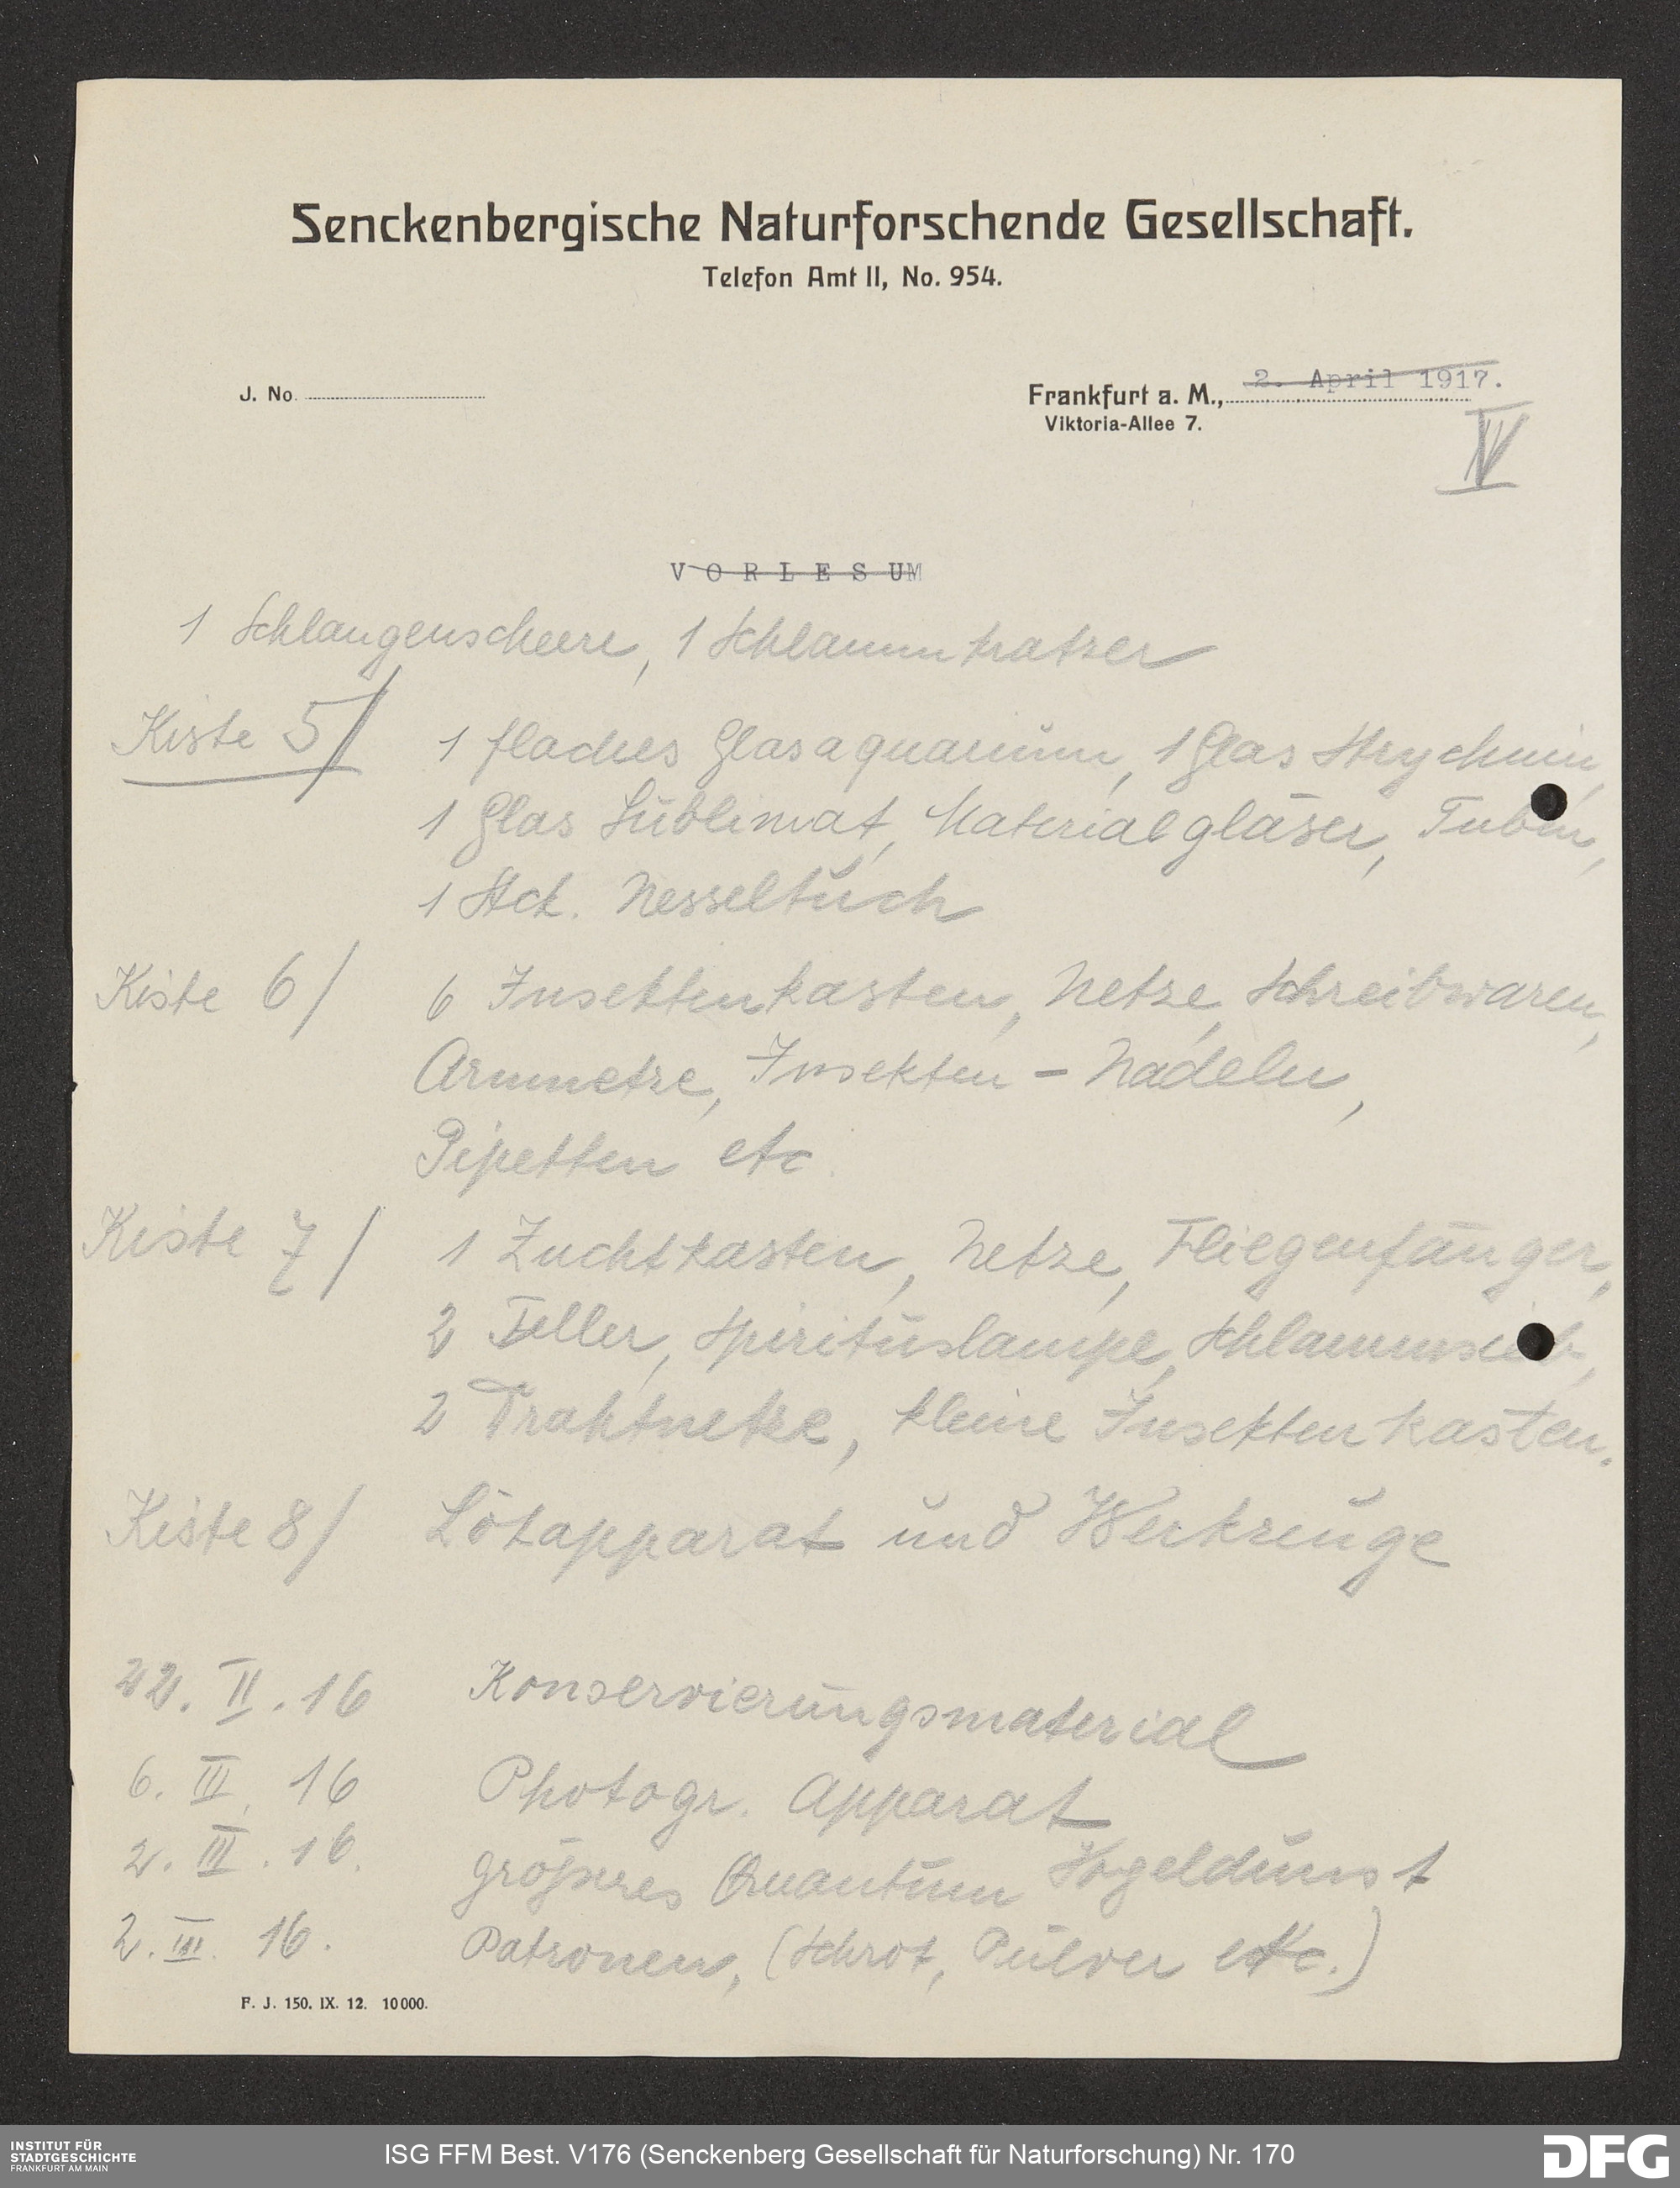 Senckenbergische Naturforschende Gesellschaft.
Telefon Amt II, No. 954.
J. No.
Frankfurt a. M., 2. April 1917.
Viktoria-Allee 7.
IV
VORLESUM
1 Schlangenscheere, 1 Schlammkratzer
Kiste 5/ 1 flaches Glasaquarium, 1 Glas Strychnin,
1 Glas Sublimat, Materialgläser, Tuben,
1 Stck. Nesseltuch
Kiste 6/ 6 Insektenkasten, Netze, Schreibwaren,
Armnetze, Insekten-Nadeln,
Pipetten etc.
Kiste 7/ 1 Zuchtkasten, Netze, Fliegenfänger,
2 Teller, Spirituslampe, Schlammsieb,
2 Drahtnetze, kleine Insektenkasten.
Kiste 8/ Lötapparat und Werkzeuge
22. II. 16 Konservierungsmaterial
6. III. 16 Photogr. Apparat
2. III. 16. grösseres Quantum Vogeldunst
2. III. 16. Patronen, (Schrot, Pulver etc.)
F. J. 150. IX. 12. 10000.
INSTITUT FÜR
STADTGESCHICHTE
FRANKFURT AM MAIN
ISG FFM Best. V176 (Senckenberg Gesellschaft für Naturforschung) Nr. 170
DFG